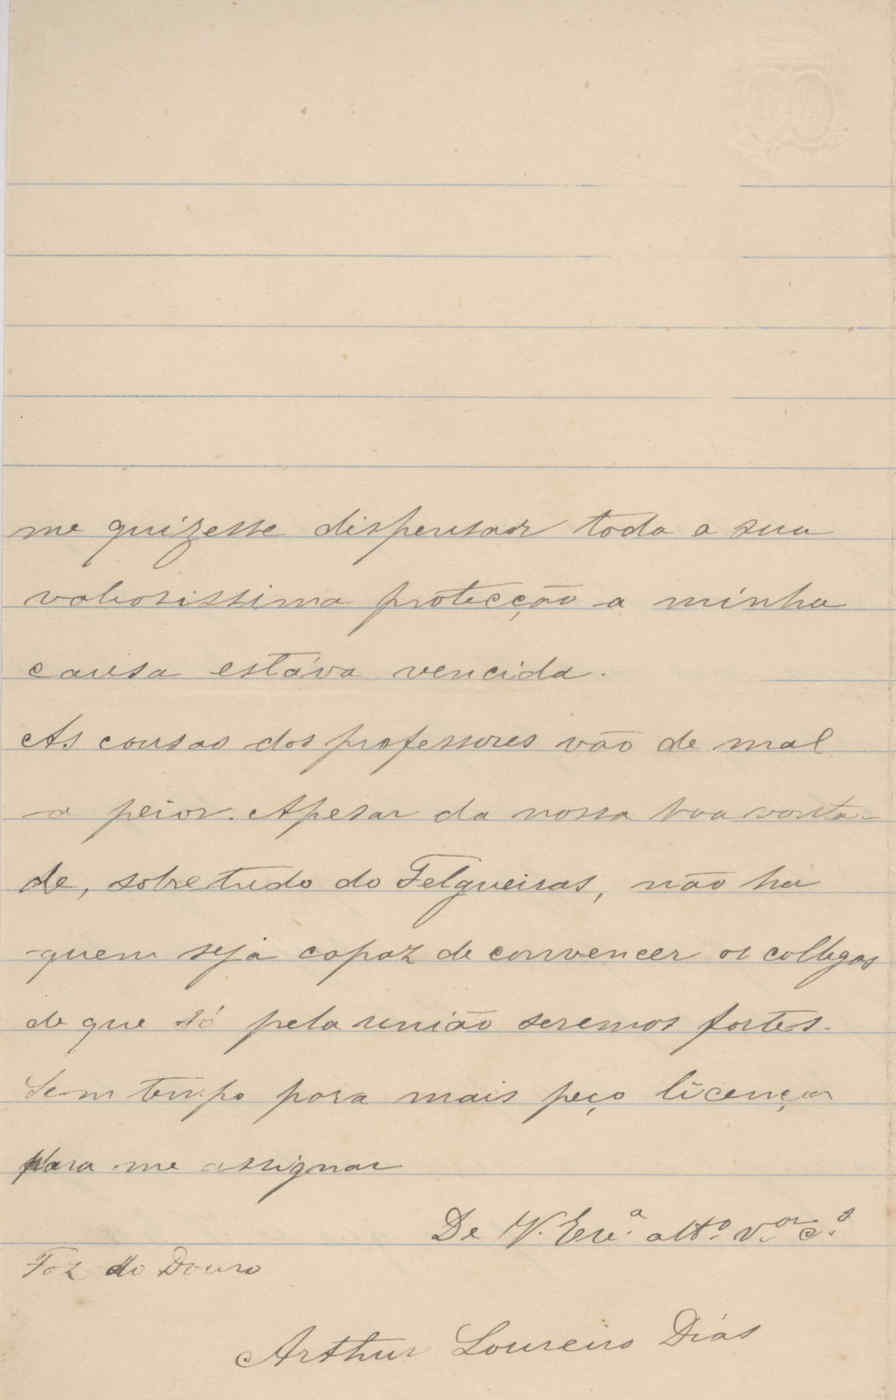 me quizesse dispensar toda a sua
valiosissima protecção a minha
causa estáva vencida.
As cousas dos professores vão de mal
a peior. Apesar da nossa boa vonta-
de, sobretudo do Felgueiras, não ha
quem seja capaz de convencer os collegas
de que só pela união seremos fortes.
Sem tempo para mais peço licença
para me assignar
De V. Exc.ª att.º v.or c.º
Foz do Douro
Arthur Loureiro Dias